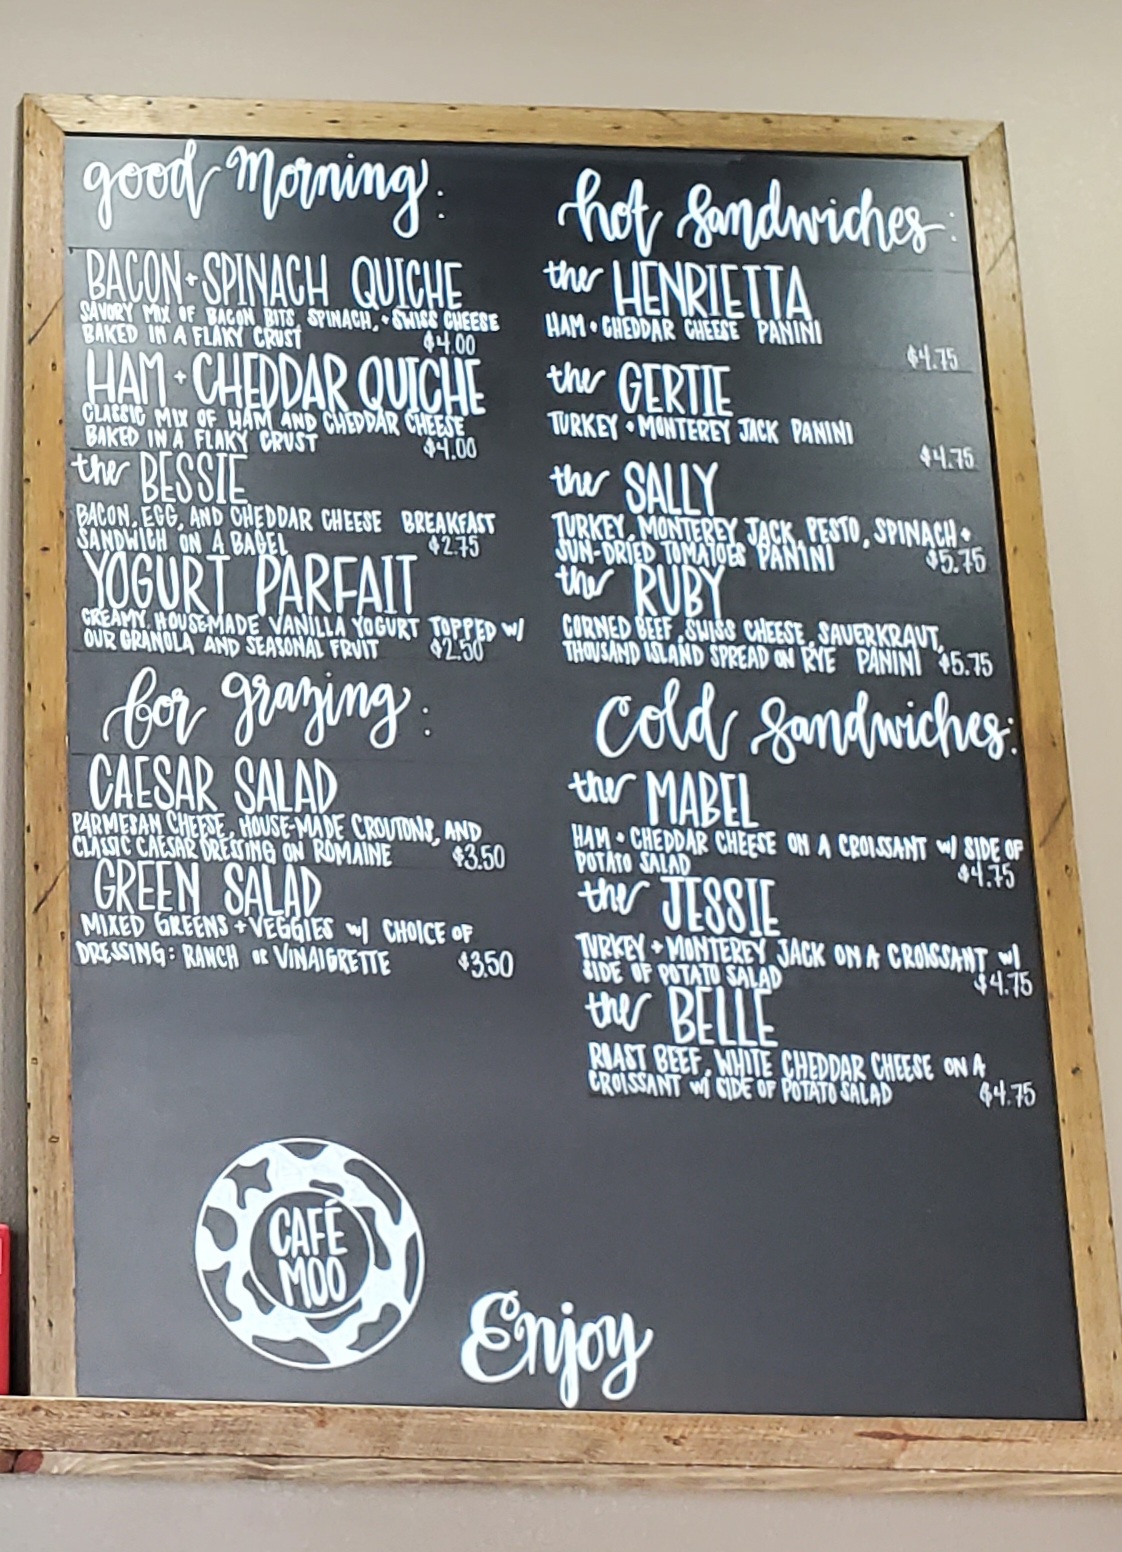 good Morning:
BACON + SPINACH QUICHE
SAVORY MIX OF BACON BITS, SPINACH, + SWISS CHEESE
BAKED IN A FLAKY CRUST $4.00
HAM + CHEDDAR QUICHE
CLASSIC MIX OF HAM AND CHEDDAR CHEESE
BAKED IN A FLAKY CRUST $4.00
the BESSIE
BACON, EGG, AND CHEDDAR CHEESE BREAKFAST
SANDWICH ON A BAGEL $2.75
YOGURT PARFAIT
CREAMY, HOUSE-MADE VANILLA YOGURT TOPPED W/
OUR GRANOLA AND SEASONAL FRUIT $2.50
for grazing:
CAESAR SALAD
PARMESAN CHEESE, HOUSE-MADE CROUTONS, AND
CLASSIC CAESAR DRESSING ON ROMAINE $3.50
GREEN SALAD
MIXED GREENS + VEGGIES W/ CHOICE OF
DRESSING: RANCH OR VINAIGRETTE $3.50
hot Sandwiches:
the HENRIETTA
HAM + CHEDDAR CHEESE PANINI
$4.75
the GERTIE
TURKEY + MONTEREY JACK PANINI
$4.75
the SALLY
TURKEY, MONTEREY JACK, PESTO, SPINACH +
SUN-DRIED TOMATOES PANINI $5.75
the RUBY
CORNED BEEF, SWISS CHEESE, SAUERKRAUT,
THOUSAND ISLAND SPREAD ON RYE PANINI $5.75
Cold Sandwiches:
the MABEL
HAM + CHEDDAR CHEESE ON A CROISSANT W/ SIDE OF
POTATO SALAD $4.75
the JESSIE
TURKEY + MONTEREY JACK ON A CROISSANT W/
SIDE OF POTATO SALAD $4.75
the BELLE
ROAST BEEF, WHITE CHEDDAR CHEESE ON A
CROISSANT W/ SIDE OF POTATO SALAD $4.75
CAFÉ
MOO
Enjoy